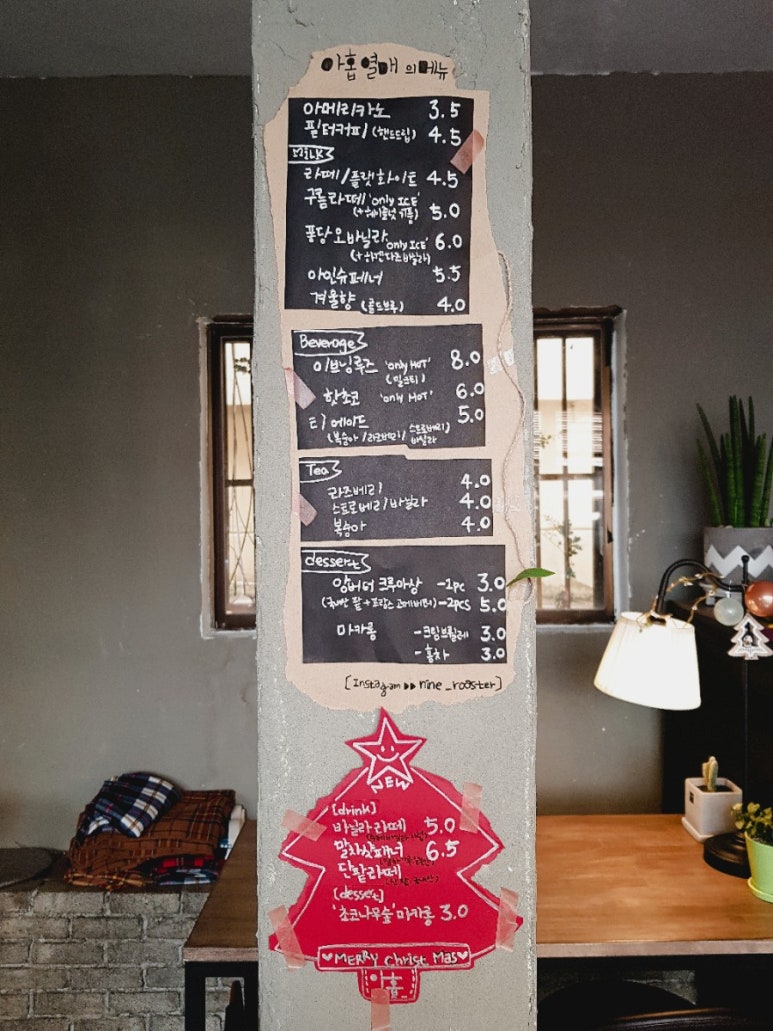 아홉열매 의 메뉴
아메리카노 3.5
필터커피 (핸드드립) 4.5
MILK
라떼/플랫화이트 4.5
구름라떼 'only ICE' 5.0
(+헤이즐넛 크림)
퐁당오바닐라 'only ICE' 6.0
(+하겐다즈바닐라)
아인슈페너 5.5
겨울향 (콜드브루) 4.0
Beverage
이브닝루즈 'only HOT' 8.0
(밀크티)
핫초코 'only HOT' 6.0
티/에이드 5.0
(복숭아/라즈베리/스트로베리/바닐라
Tea
라즈베리 4.0
스트로베리/바닐라 4.0
복숭아 4.0
dessert
앙버터 크루아상 -1pc 3.0
(국내산 팥+프랑스 고메버터) -2pcs 5.0
마카롱 -크림브륄레 3.0
-홍차 3.0
[Instagram ▸▸ nine_rooster]
NEW
[drink]
바닐라라떼 5.0
말차샷페너 6.5
단팥라떼
[dessert]
'초코나무숲' 마카롱 3.0
♥MERRY Christmas♥
아홉